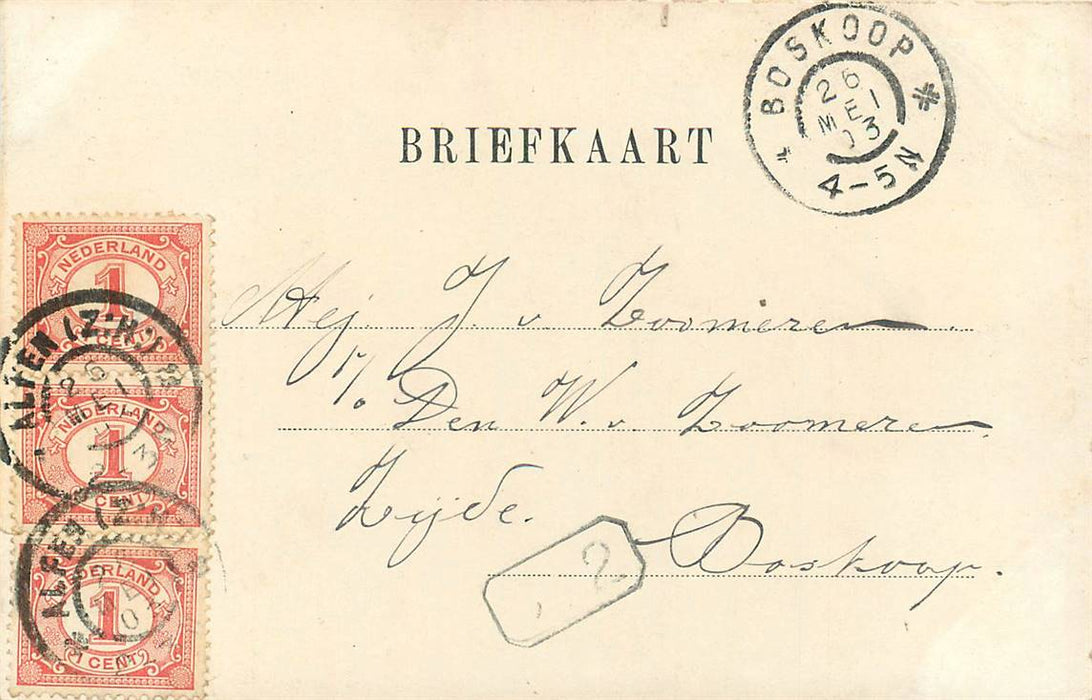 BOSKOOP
26 MEI 03
4-5N
BRIEFKAART
NEDERLAND
1
CENT
ALFEN (Z-H.)
NEDERLAND
1
CENT
ALFEN (Z
NEDERLAND
1
1 CENT
Mej. J. v. Zoomeren
p/o Den W. v. Zoomeren
Zijde.
Boskoop.
2